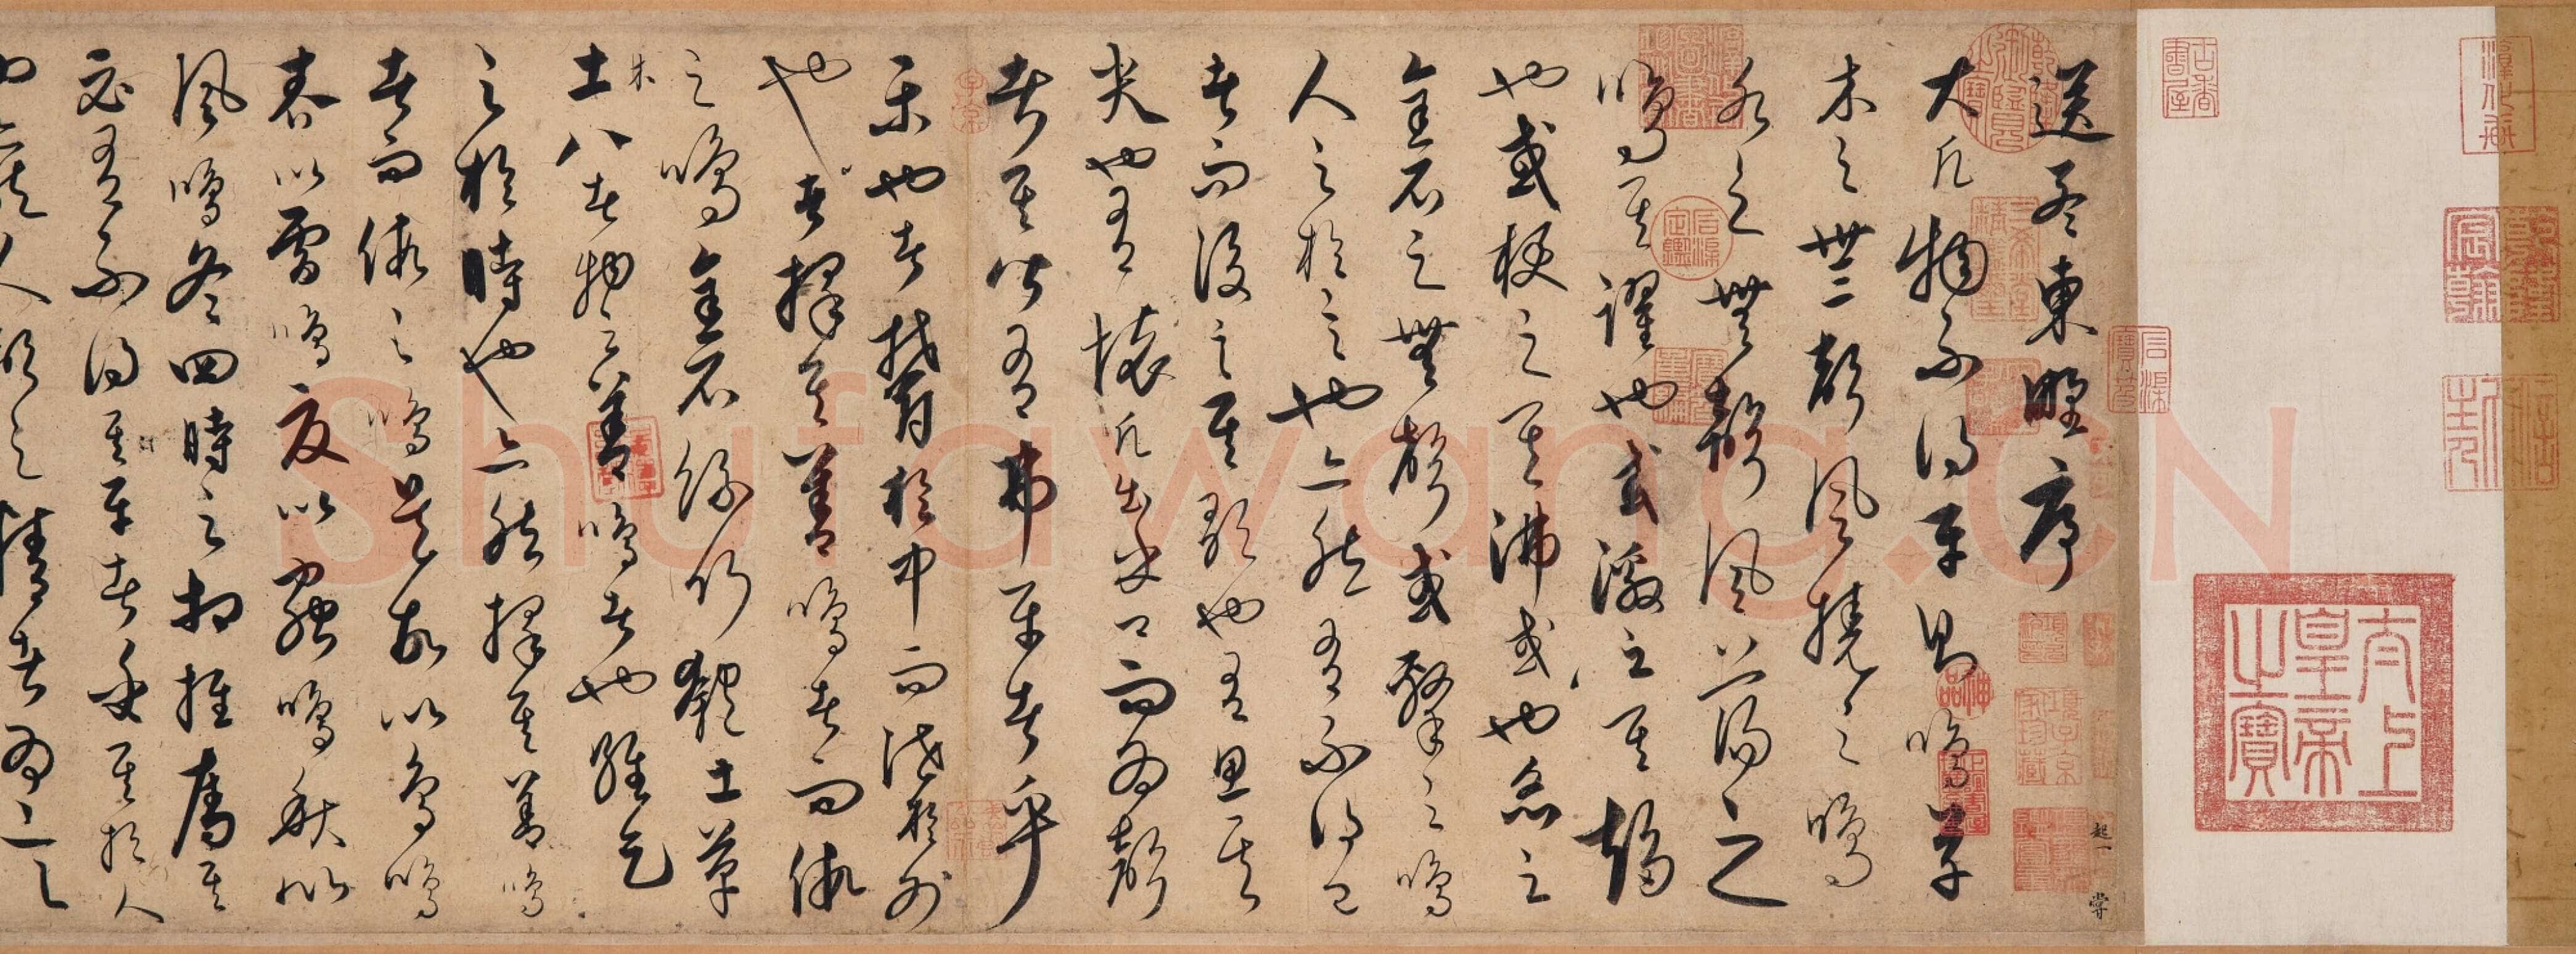 淳化軒
乾隆宸翰
太上皇帝之寶
石渠寶笈
送孟東野序
大凡物不得平則鳴草
木之無聲風撓之鳴
水之無聲風以蕩之
鳴其躍也或激之其趨
也或梗之其沸或也炙之
金石之無聲或擊之鳴
人之於言也亦然有不得已
者而後言其歌也有思其
哭也有懷凡出乎口而為聲
者其皆有弗平者乎
樂也者鬱於中而泄於外
也者擇其善鳴者而假
之鳴金石絲竹匏土草
木
土八者物之善鳴者也維天
之於時也亦然擇其善鳴
者而假之鳴是故以鳥鳴
春以雷鳴夏以蟲鳴秋以
風鳴冬四時之相推奪其
必有不得其平者乎其於人
也亦然人聲之精者為言
神品
shufawang.CN